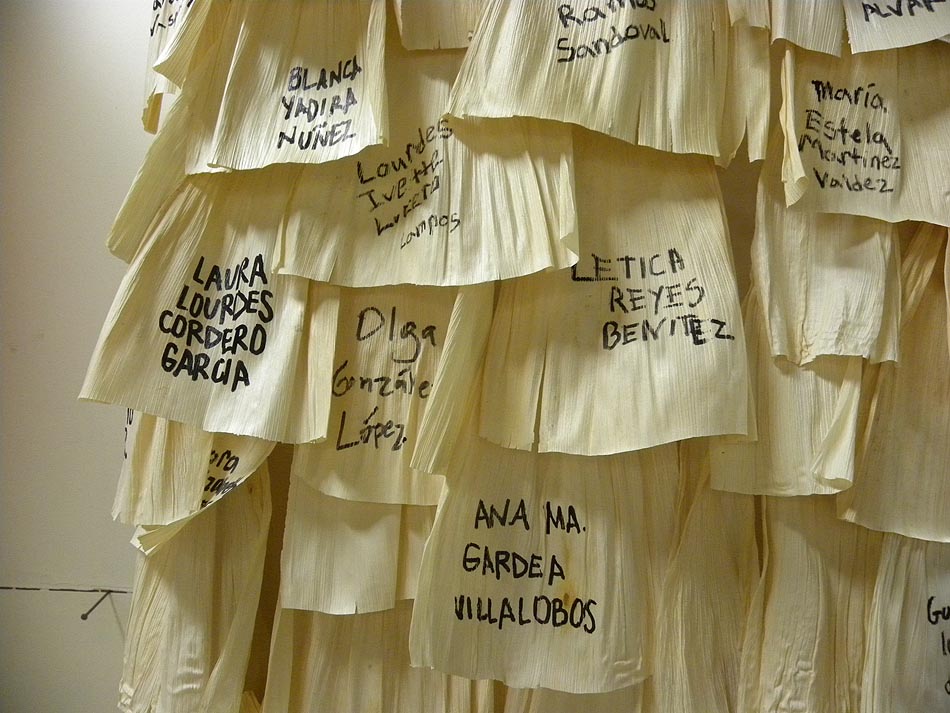 Ramos
Sandoval
BLANCA
YADIRA
NUÑEZ
Lourdes
Ivette
Lucero
Campos
María
Estela
Martinez
Valdez
LAURA
LOURDES
CORDERO
GARCIA
Olga
Gonzále
López
LETICA
REYES
BENITEZ
ANA MA.
GARDEA
VILLALOBOS